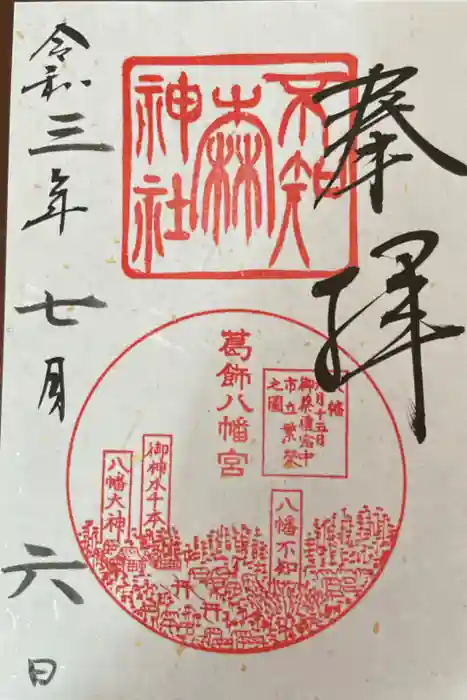 奉拝
不知
森
神社
葛飾八幡宮
八幡
八月十五日
御祭禮宮中
市立繁榮
之圖
八幡不知
御神木千本
八幡大神
令和三年七月六日